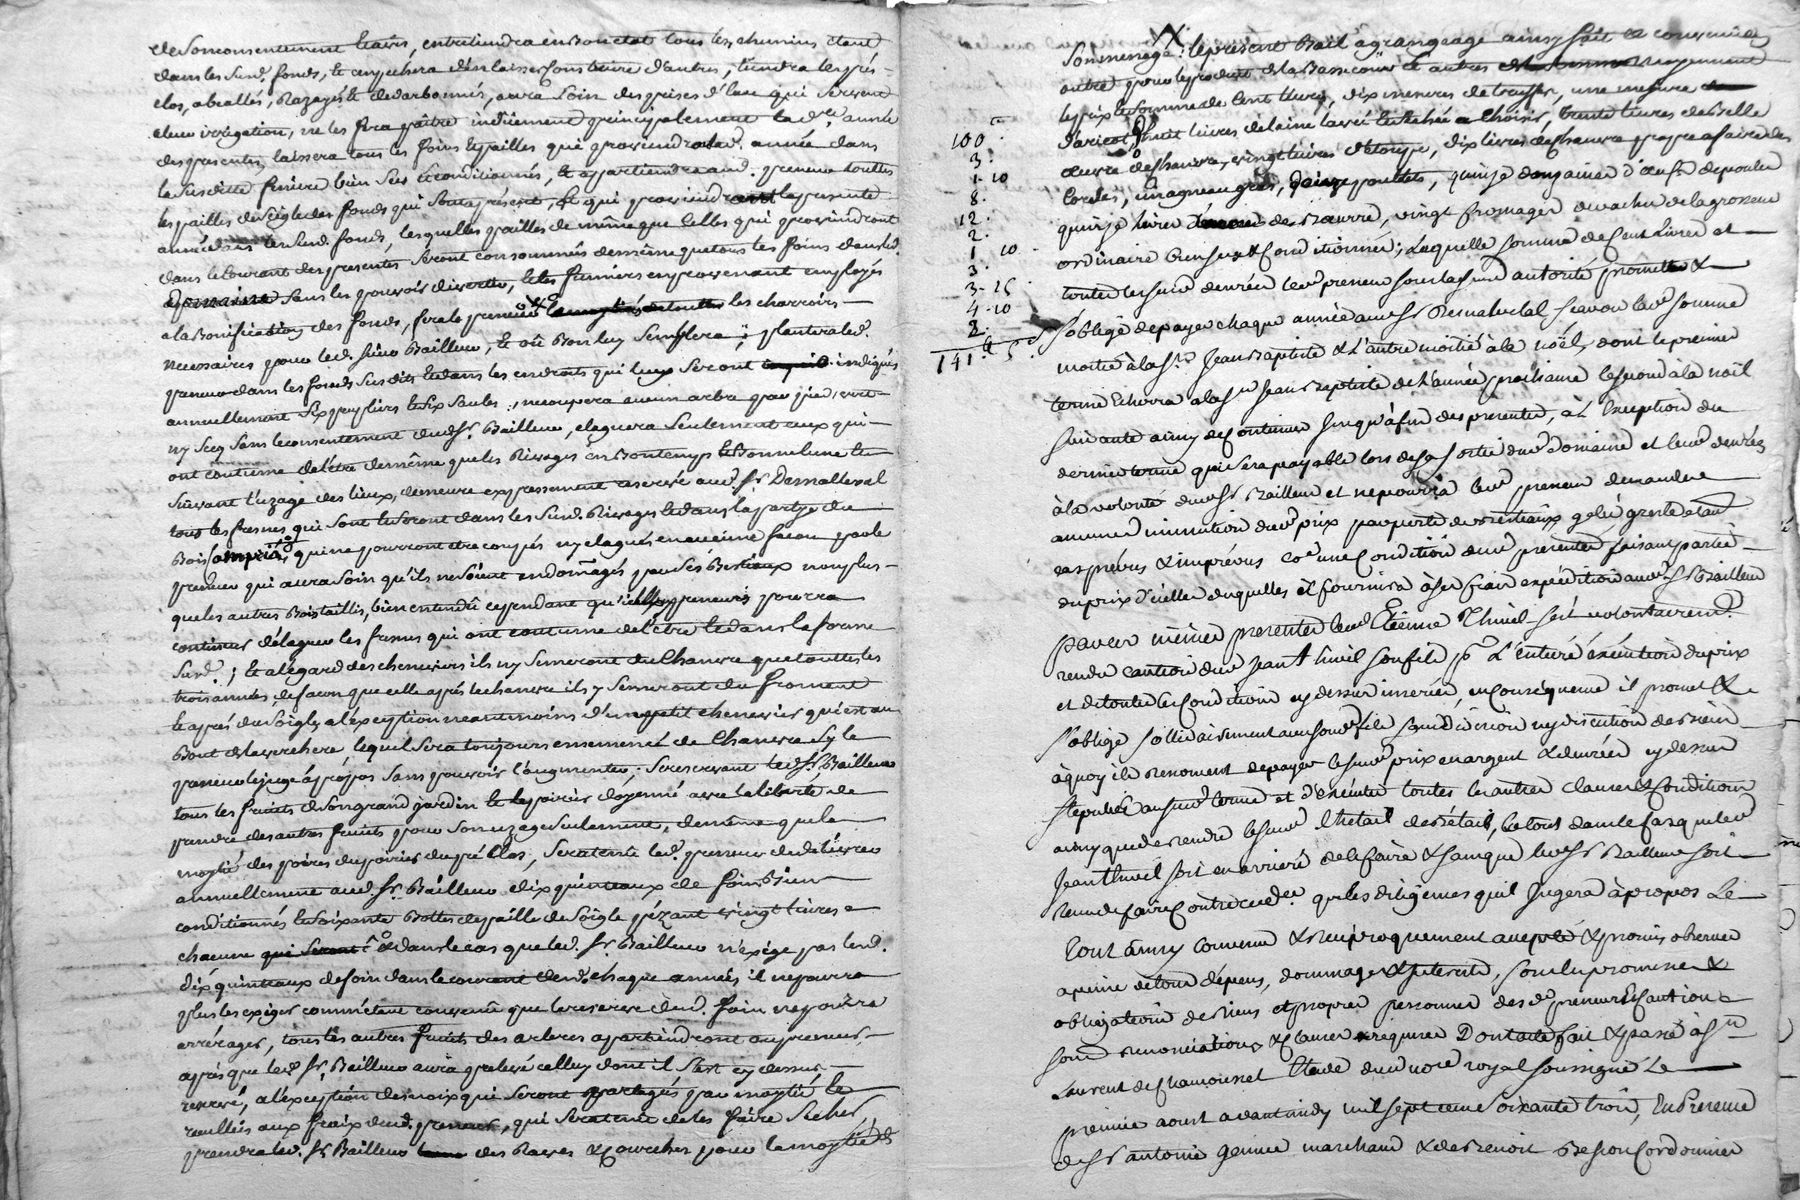 de son consentement et avis, entretiendra en bon etat tous les chemins etant
dans les susd. fonds, et empechera d'en laisser construire d'autres, tiendra les prés
clos, abeallés, razagés et decharbonnés, aura soin des prises d'eau qui servent
a leur irrigation, ne les fera paître induement principalement la d.re année
des presentes, laissera tous les foins et pailles qui proviendront lad. année dans
la susditte feniere bien secs et conditionnés, et appartiendra aud. preneur touttes
les pailles de seigle des fonds qui sont a présent, et qui proviendront la presente
année dans les susd. fonds, lesquelles pailles de même que celles qui proviendront
dans le courant des presentes seront consommées de même que tous les foins dans led.
domaine sans les pouvoir divertir, et les fumiers en provenant employés
a la bonification des fonds, fera le preneur les charrois
necessaires pour led. sieur Bailleur, et où bon luy semblera ; plantera led.
preneur dans les fonds susdits et dans les endroits qui luy seront indiqués
annuellement six peupliers et six saules, ne coupera aucun arbre par pied, vert
ny secq sans le consentement dud. Sr. Bailleur, elaguera seulement ceux qui
ont coutume de l'être de même que les rivages en bon temps et bonne lune le
suivant l'uzage des lieux, demeure expressement reservé aud. Sr. Demalleval
tous les fresnes qui sont et seront dans les susd. rivages et dans la partye du
bois qui ne pourront etre coupés ny elagués en aucune façon par le
preneur qui aura soin qu'ils ne soient endommagés par ses bestiaux non plus
que les autres bois taillis, bien entendû cependant qu'il preneur pourra
continuer d'élaguer les fresnes qui ont coutume de l'être et dans la forme
susd. ; et a l'egard des cheneviers ils n'y semeront du chanvre que touttes les
trois années, de façon que celle après le chanvre ils y semeront du froment
et après du seigle, a l'exception neantmoins d'un petit chenevier qui est au
bout de la verchere, lequel sera toujours ensemencé de chanvre sy le
preneur le juge à propos sans pouvoir l'augmenter ; se reservant led. Sr. Bailleur
tous les fruits de son grand jardin et le poirier doyenné avec la liberté de
prendre des autres fruits pour son uzage seulement, de même que la
moytié des poires du poirier du pré clos, sera tenu led. preneur de délivrer
annuellement aud. Sr. Bailleur dix quinteaux de foin bien
conditionnés et soixante bottes de paille de seigle pézant vingt livres
chacune qui seront & dans le cas que led. Sr. Bailleur n'exige pas lesd.
dix quinteaux de foin dans le courant de chaque année, il ne pourra
plus les exiger comm'étant convenu que la reserve dud. foin ne poura
arrérager, tous les autres fruits des arbres apartiendront au preneur
après que led. Sr. Bailleur aura prelevé celluy dont il s'est cy dessus
reservé, a l'exception des noix qui seront partagés par moytié et
receuillies aux fraix dud. preneur, qui sera tenu de les faire secher,
prendra led. Sr. Bailleur des raves & courches pour la moytié de
son menage : le present Bail à grangeage ainsy fait et convenu
outre pour le produit de la basse cour et autres moyennant
le prix et somme de cent livres, dix mesures de truffes, une mesure
d'aricot, huit livres de laine lavée et sechée a choisir, trente livres de belle
œuvre de chanvre, vingt livres d'étoupe, dix livres de chanvre propre a faire des
cordes, un agneau gras, poulets, quinze douzaines d'œufs de poules
quinze livres de beurre, vingt fromages de vache de la grosseur
ordinaire bien secs & conditionnés ; laquelle somme de cent livres et
toutes les susd. denrées led. preneur sous lad. autorité promet &
s'oblige de payer chaque année aud. Sr. Demalleval scavoir lad. somme
moitié à la St. Jean Baptiste & l'autre moitié à la noël, dont le premier
terme echerra a la St. Jean Baptiste de l'année prochaine le second à la noël
suivante ainsy de continuer jusqu'à fin des presentes, à l'exception du
dernier terme qui sera payable lors de sa sortie dud. domaine et lesd. denrées
à la volonté dud. Sr. Bailleur et ne pourra led. preneur demander
aucune diminution dud. prix par perte de bestiaux gelée, grêle et autres
cas prévûs & imprévus co.e une condition dud. present faisant partie
du prix d'icelles desquelles il fournira à ses frais expédition aud. Sr. Bailleur
par ces mêmes presentes led. Etienne Thivel s'est volontairem.t
rendu caution dud. Jean Thivel son fils p.r l'entiere éxécution du prix
et de toutes les conditions cy dessus inserées, en consequence il promet &
s'oblige sollidairement avec sond. fils sans division ny discution de biens
à quoy ils renoncent de payer lesd. prix en argent & denrées cy dessus
stipulés auxd. termes et d'exécuter toutes les autres clauses & conditions
ainsy que de rendre lesd. bétail, le tout dans le cas que led.
Jean Thivel soit en arriere de le faire & sans que led. Sr. Bailleur soit
tenu de faire contre led. que les diligences qu'il jugera à propos Le
tout ainsy convenu & reciproquement accepté & promis observer
a peine de tous dépens, dommages & interests, sous les promesses &
obligations de biens et propres personnes desd. preneur et caution
sous renonciations & clauses requises Dont acte fait & passé à St.
Laurent de Chamousset Etude dud. no.re royal soussigné Le
premier aoust avant midy mil sept cent soixante trois, En Presence
de Sr. antoine marchand & de Benoit Besson Cordonnier
100
3
1-10
8
12
2
1 10
3
3-15
4-10
2
141 5